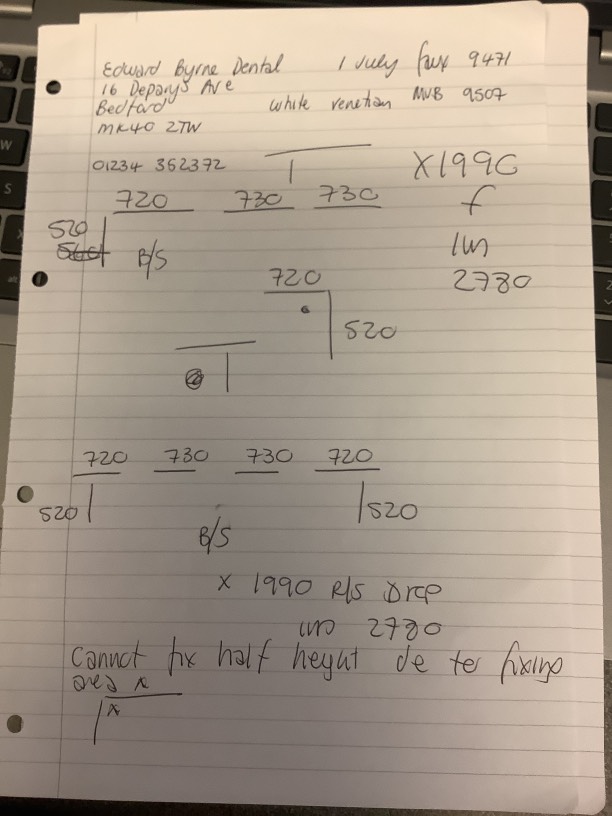 Edward Byrne Dental 1 July faux 9471
16 Deparys Ave
Bedford white venetian MVB 9507
MK40 2TW
01234 352372 X1990
720 730 730 f
520
B/S
2780
720
520
720 730 730 720
520 520
B/S
x 1990 R/S Drop
2780
Cannot fix half height de to fixing
area x
x